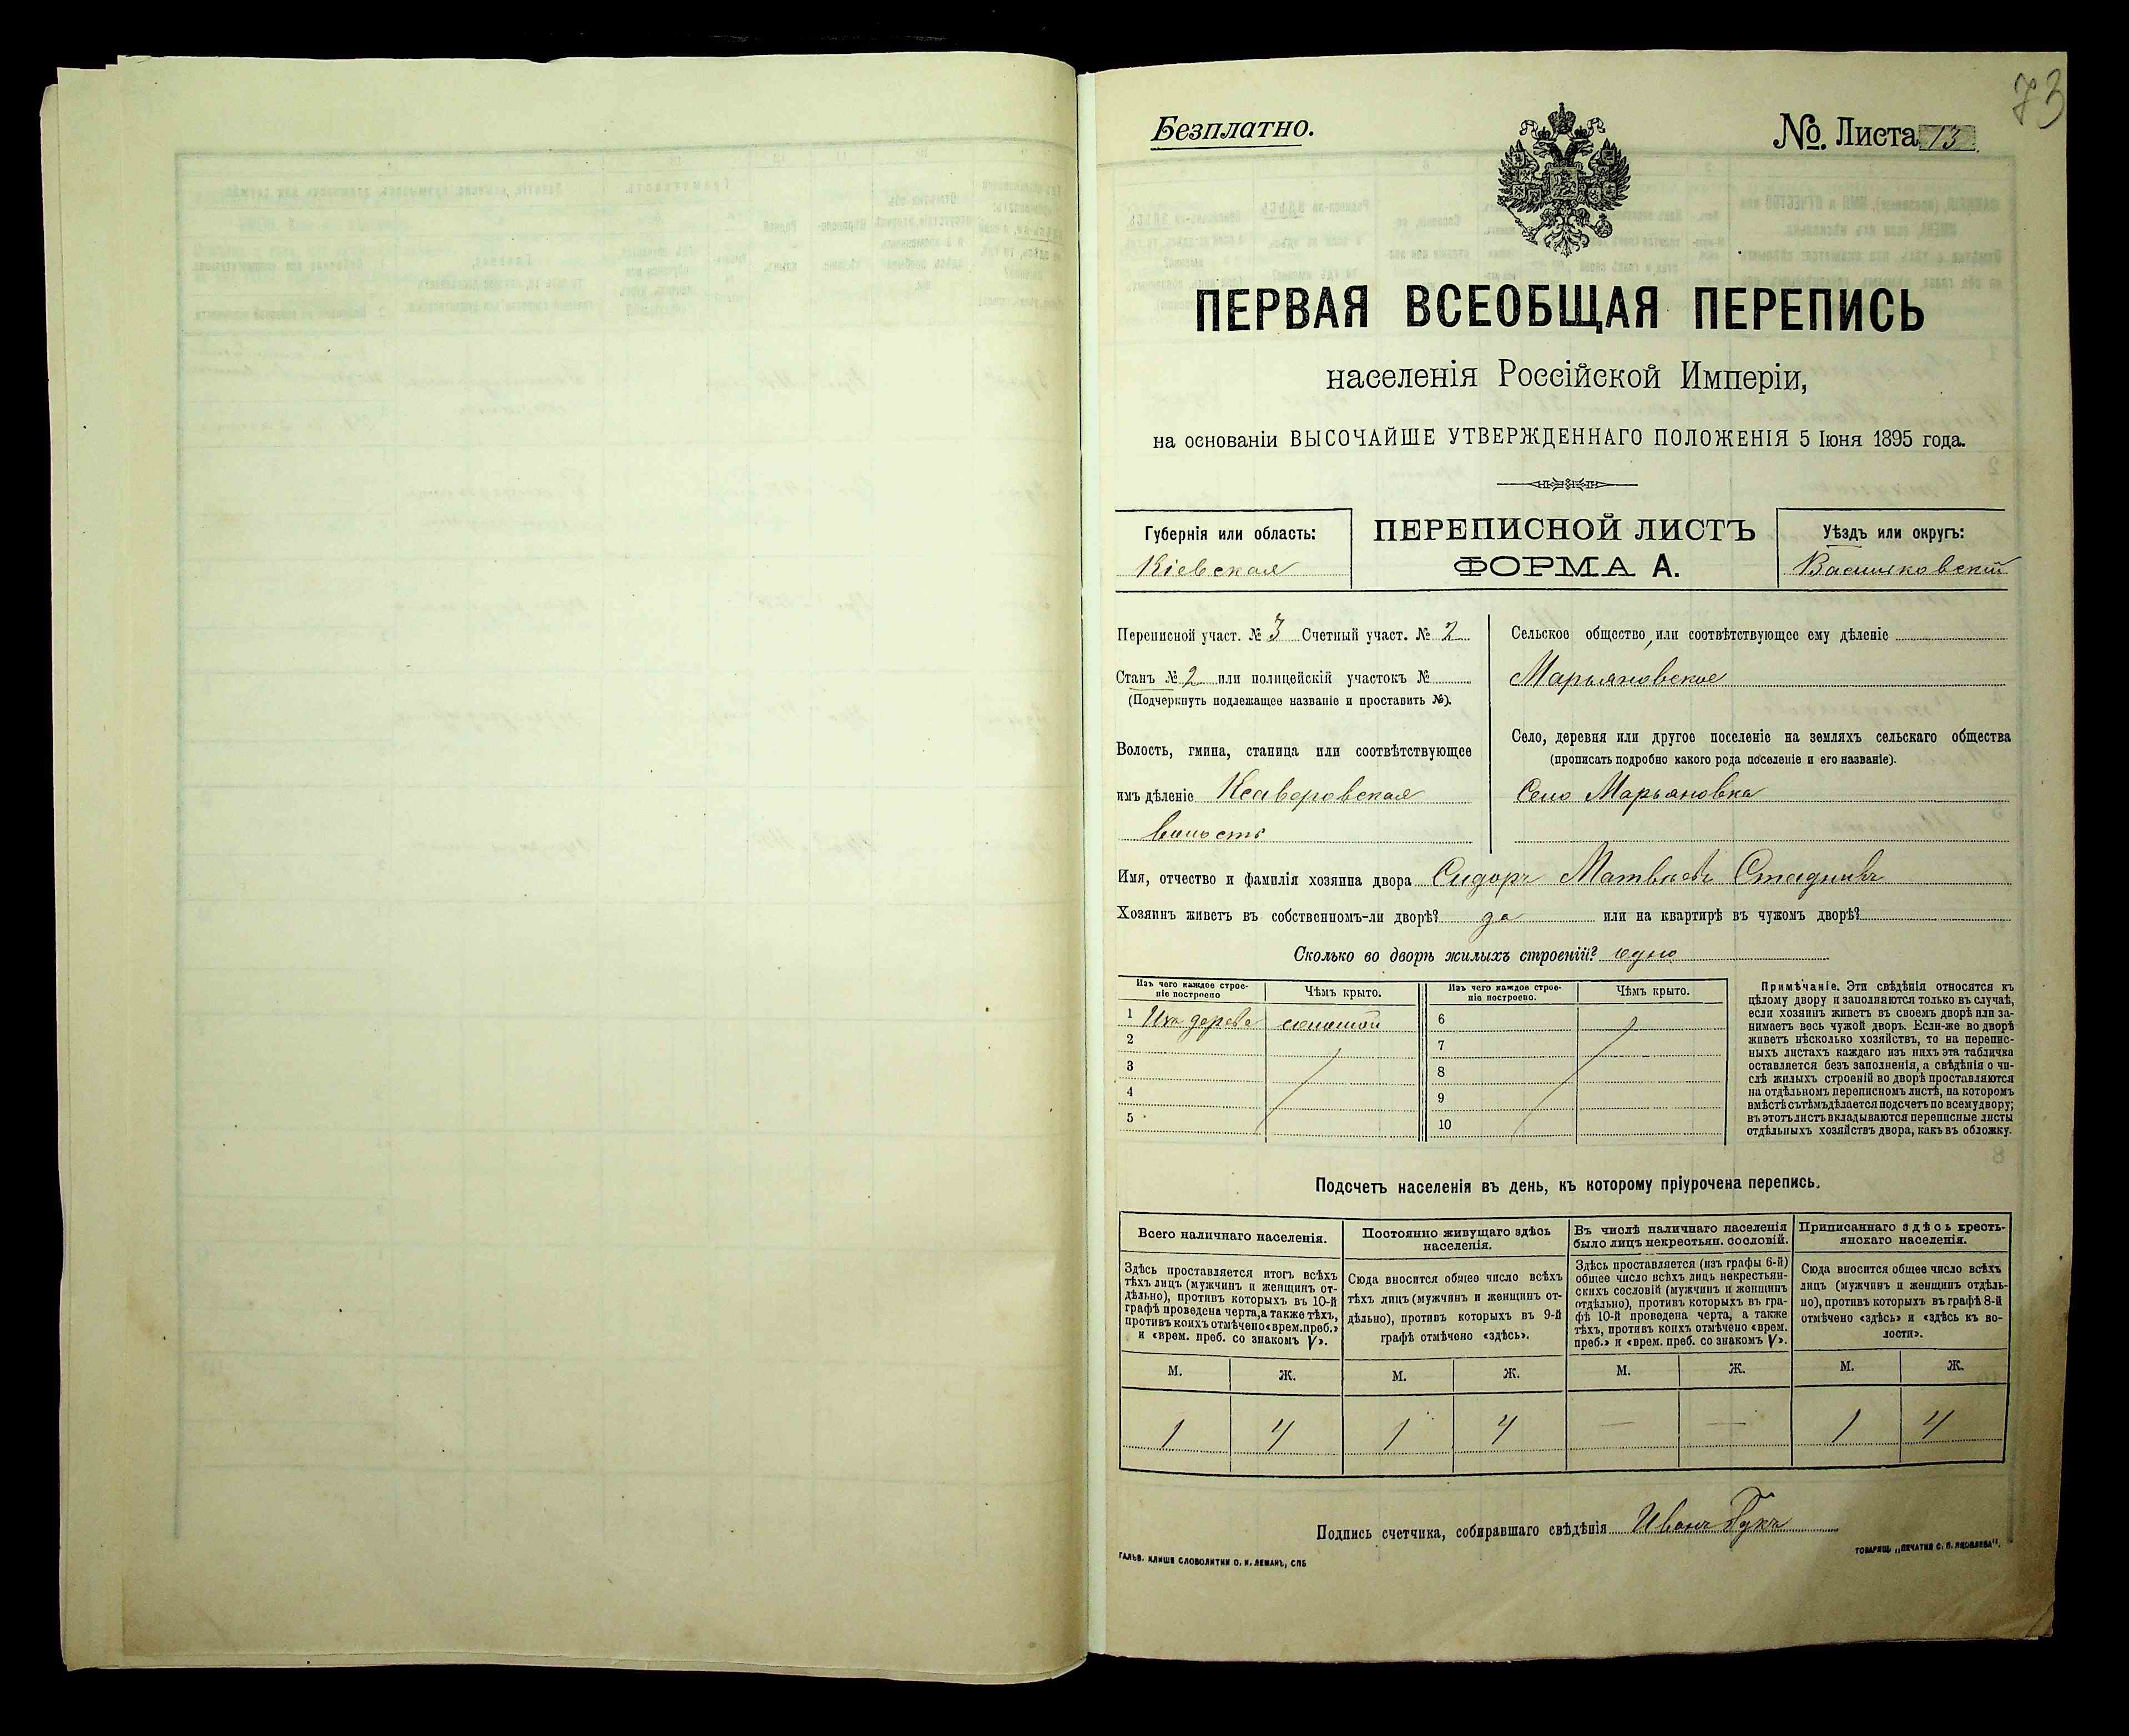 73
Безплатно.
No. Листа 13
ПЕРВАЯ ВСЕОБЩАЯ ПЕРЕПИСЬ
населенія Россійской Имперіи,
на основаніи ВЫСОЧАЙШЕ УТВЕРЖДЕННАГО ПОЛОЖЕНІЯ 5 Іюня 1895 года.
Губернія или область:
Кіевская
ПЕРЕПИСНОЙ ЛИСТЪ
ФОРМА А.
Уѣздъ или округъ:
Васильковскій
Переписной участ. № 3 Счетный участ. № 2
Станъ № 2 или полицейскій участокъ №
(Подчеркнуть подлежащее названіе и проставить №).
Волость, гмина, станица или соотвѣтствующее
имъ дѣленіе Ксаверовская
волость
Сельское общество, или соотвѣтствующее ему дѣленіе
Марьяновское
Село, деревня или другое поселеніе на земляхъ сельскаго общества
(прописать подробно какого рода поселеніе и его названіе).
Село Марьяновка
Имя, отчество и фамилія хозяина двора Сидоръ Матвѣевъ
Хозяинъ живетъ въ собственномъ-ли дворѣ? да или на квартирѣ въ чужомъ дворѣ?
Сколько во дворѣ жилыхъ строеній? одно
Изъ чего каждое строе-
ніе построено
Чѣмъ крыто.
1 Изъ дерева соломой
2
3
4
5
Изъ чего каждое строе-
ніе построено.
Чѣмъ крыто.
6
7
8
9
10
Примѣчаніе. Эти свѣдѣнія относятся къ
цѣлому двору и заполняются только въ случаѣ,
если хозяинъ живетъ въ своемъ дворѣ или за-
нимаетъ весь чужой дворъ. Если-же во дворѣ
живетъ нѣсколько хозяйствъ, то на перепис-
ныхъ листахъ каждаго изъ нихъ эта табличка
оставляется безъ заполненія, а свѣдѣнія о чи-
слѣ жилыхъ строеній во дворѣ проставляются
на отдѣльномъ переписномъ листѣ, на которомъ
вмѣстѣ съ тѣмъ дѣлается подсчетъ по всему двору;
въ этотъ листъ вкладываются переписные листы
отдѣльныхъ хозяйствъ двора, какъ въ обложку.
Подсчетъ населенія въ день, къ которому пріурочена перепись.
Всего наличнаго населенія.
Здѣсь проставляется итогъ всѣхъ
тѣхъ лицъ (мужчинъ и женщинъ от-
дѣльно), противъ которыхъ въ 10-й
графѣ проведена черта, а также тѣхъ,
противъ коихъ отмѣчено «врем. преб.»
и «врем. преб. со знакомъ V».
М. Ж.
1 4
Постоянно живущаго здѣсь
населенія.
Сюда вносится общее число всѣхъ
тѣхъ лицъ (мужчинъ и женщинъ от-
дѣльно), противъ которыхъ въ 9-й
графѣ отмѣчено «здѣсь».
М. Ж.
1 4
Въ числѣ наличнаго населенія
было лицъ некрестьян. сословій.
Здѣсь проставляется (изъ графы 6-й)
общее число всѣхъ лицъ некрестьян-
скихъ сословій (мужчинъ и женщинъ
отдѣльно), противъ которыхъ въ гра-
фѣ 10-й проведена черта, а также
тѣхъ, противъ коихъ отмѣчено «врем.
преб.» и «врем. преб. со знакомъ V».
М. Ж.
— —
Приписаннаго здѣсь кресть-
янскаго населенія.
Сюда вносится общее число всѣхъ
лицъ (мужчинъ и женщинъ отдѣль-
но), противъ которыхъ въ графѣ 8-й
отмѣчено «здѣсь» и «здѣсь къ во-
лости».
М. Ж.
1 4
Подпись счетчика, собиравшаго свѣдѣнія Иванъ
ГАЛЬВ. КЛИШЕ СЛОВОЛИТНИ О. И. ЛЕМАНЪ, СПБ
ТОВАРИЩ. „ПЕЧАТНЯ С. П. ЯКОВЛЕВА".